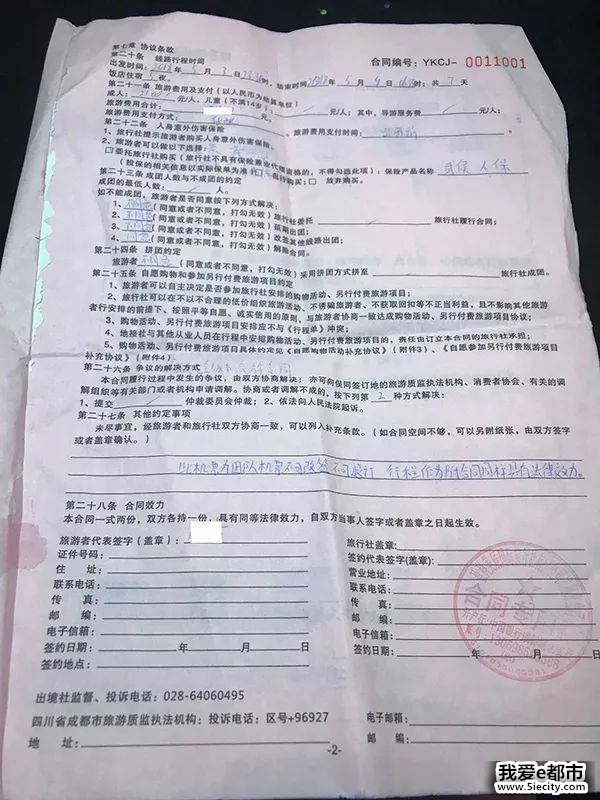 第七章 协议条款
合同编号：YKCJ- 0011001
第二十条 线路行程时间
出发时间：2018年5月3日 结束时间2018年5月9日 时；共7天
饭店住宿5夜。
第二十一条 旅游费用及支付（以人民币为结算单位）
成人： 元/人，儿童（不满14岁）： 元/人；其中，导游服务费 元/人；
旅游费用合计：
旅游费用支付方式： 旅游费用支付时间：
第二十二条 人身意外伤害保险
1、旅行社提示旅游者购买人身意外伤害保险。
2、旅游者可以做以下选择：
□委托旅行社购买（旅行社不具有保险兼业代理资格的，不得勾选此项）：保险产品名称 人保
（投保的相关信息以实际保单为准 自行购买；□ 放弃购买。
第二十三条 成团人数与不成团的约定
成团的最低人数： 人。
如不能成团，旅游者是否同意按下列方式解决：
1、不同意（同意或者不同意，打勾无效）旅行社委托 旅行社履行合同；
2、不同意（同意或者不同意，打勾无效）延期出团；
3、不同意（同意或者不同意，打勾无效）改签其他线路出团；
4、同意（同意或者不同意，打勾无效）解除合同。
第二十四条 拼团约定
旅游者 不同意（同意或者不同意，打勾无效）采用拼团方式拼至 旅行社成团。
第二十五条 自愿购物和参加另行付费旅游项目约定
1、旅游者可以自主决定是否参加旅行社安排的购物活动、另行付费旅游项目；
2、旅行社可以在不以不合理的低价组织旅游活动、不诱骗旅游者、不获取回扣等不正当利益，且不影响其他旅游
者行程安排的前提下，按照平等自愿、诚实信用的原则，与旅游者协商一致达成购物活动、另行付费旅游项目协议；
3、购物活动、另行付费旅游项目安排应不与《行程单》冲突；
4、地接社及其他从业人员在行程中安排购物活动、另行付费旅游项目的，责任由订立本合同的旅行社承担；
5、购物活动、另行付费旅游项目具体约定见《自愿购物活动补充协议》（附件3）、《自愿参加另行付费旅游项目
补充协议》（附件4）。
第二十六条 争议的解决方式
本合同履行过程中发生的争议，由双方协商解决；亦可向合同签订地的旅游质监执法机构、消费者协会、有关的调
解组织等有关部门或者机构申请调解。协商或者调解不成的，按下列第 2 种方式解决：
1、提交 仲裁委员会仲裁；2、依法向人民法院起诉。
第二十七条 其他约定事项
未尽事宜，经旅游者和旅行社双方协商一致，可以列入补充条款。（如合同空间不够，可以另附纸张，由双方签字
或者盖章确认。）
此机票为团队机票不可改签 不可退订 行程作为附合同同样具有法律效力。
第二十八条 合同效力
本合同一式两份，双方各持一份，具有同等法律效力，自双方当事人签字或者盖章之日起生效。
旅游者代表签字（盖章）： 旅行社盖章：
证件号码： 签约代表签字(盖章)：
住 址： 营业地址：
联系电话： 联系电话：
传 真： 传 真：
邮 编： 邮 编：
电子信箱： 电子信箱：
签约日期： 年 月 日 签约日期： 年 月 日
签约地点：
合同专
出境社监督、投诉电话：028-64060495
四川省成都市旅游质监执法机构：投诉电话：区号+96927 电子邮箱：
地 址： 邮 编：
-2-
我爱e都市
www.5iecity.com